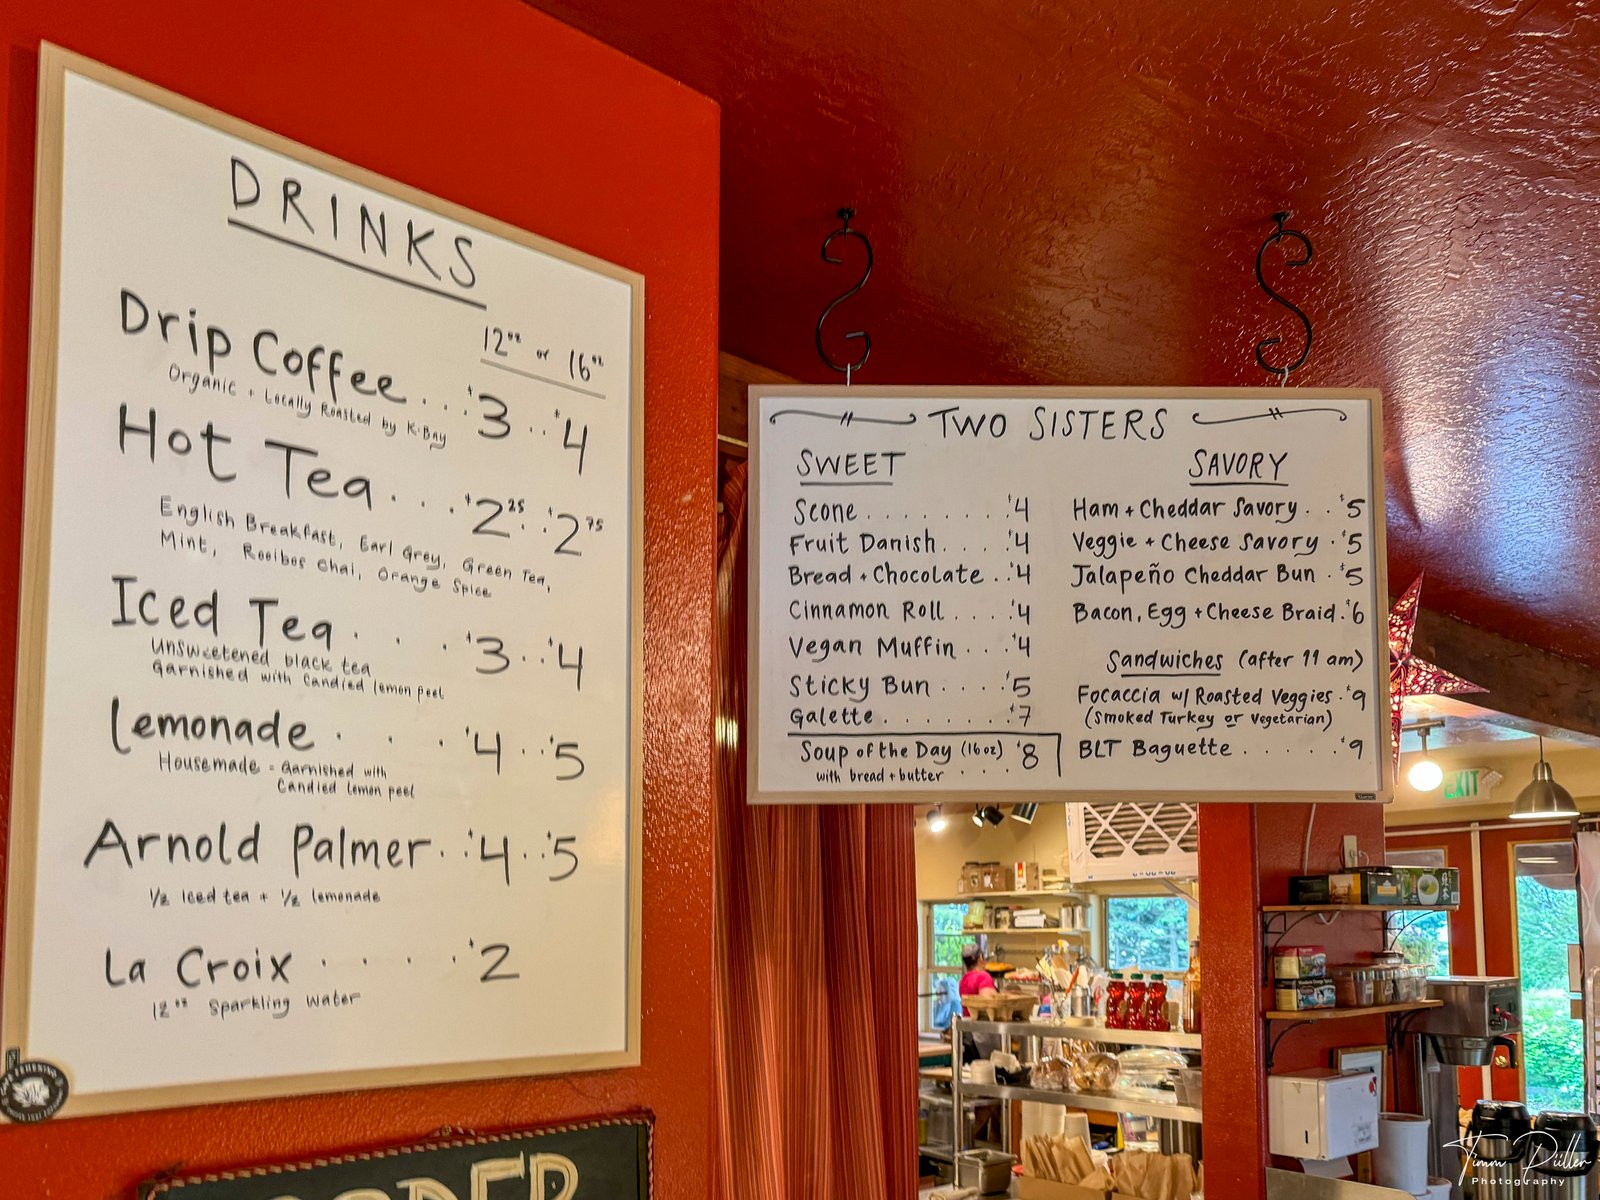 DRINKS
12oz or 16oz
Drip Coffee . . . $3 . . $4
Organic + Locally Roasted by K-Bay
Hot Tea . . . $2 25 . . $2 75
English Breakfast, Earl Grey, Green Tea,
Mint, Rooibos Chai, Orange Spice
Iced Tea . . . $3 . . $4
Unsweetened black tea
Garnished with Candied lemon peel
Lemonade . . . $4 . . $5
Housemade - Garnished with
Candied lemon peel
Arnold Palmer . . $4 . . $5
1/2 Iced tea + 1/2 lemonade
La Croix . . . . . $2
12oz Sparkling Water
TWO SISTERS
SWEET
Scone . . . . . . . . $4
Fruit Danish . . . . $4
Bread + Chocolate . . $4
Cinnamon Roll . . . . $4
Vegan Muffin . . . $4
Sticky Bun . . . . $5
Galette . . . . . . . $7
Soup of the Day (16oz) $8
with bread + butter . . . .
SAVORY
Ham + Cheddar Savory . . $5
Veggie + Cheese Savory . $5
Jalapeño Cheddar Bun . $5
Bacon, Egg + Cheese Braid . $6
Sandwiches (after 11 am)
Focaccia w/ Roasted Veggies . $9
(Smoked Turkey or Vegetarian)
BLT Baguette . . . . . . $9
EXIT
Timm Düller
Photography